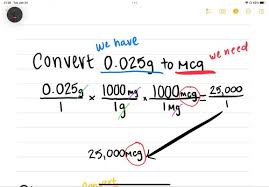 we have
Convert 0.025g to mcg
we need
0.025g/1 × 1000mg/1g × 1000mcg/1mg = 25,000/1
25,000mcg
Convert